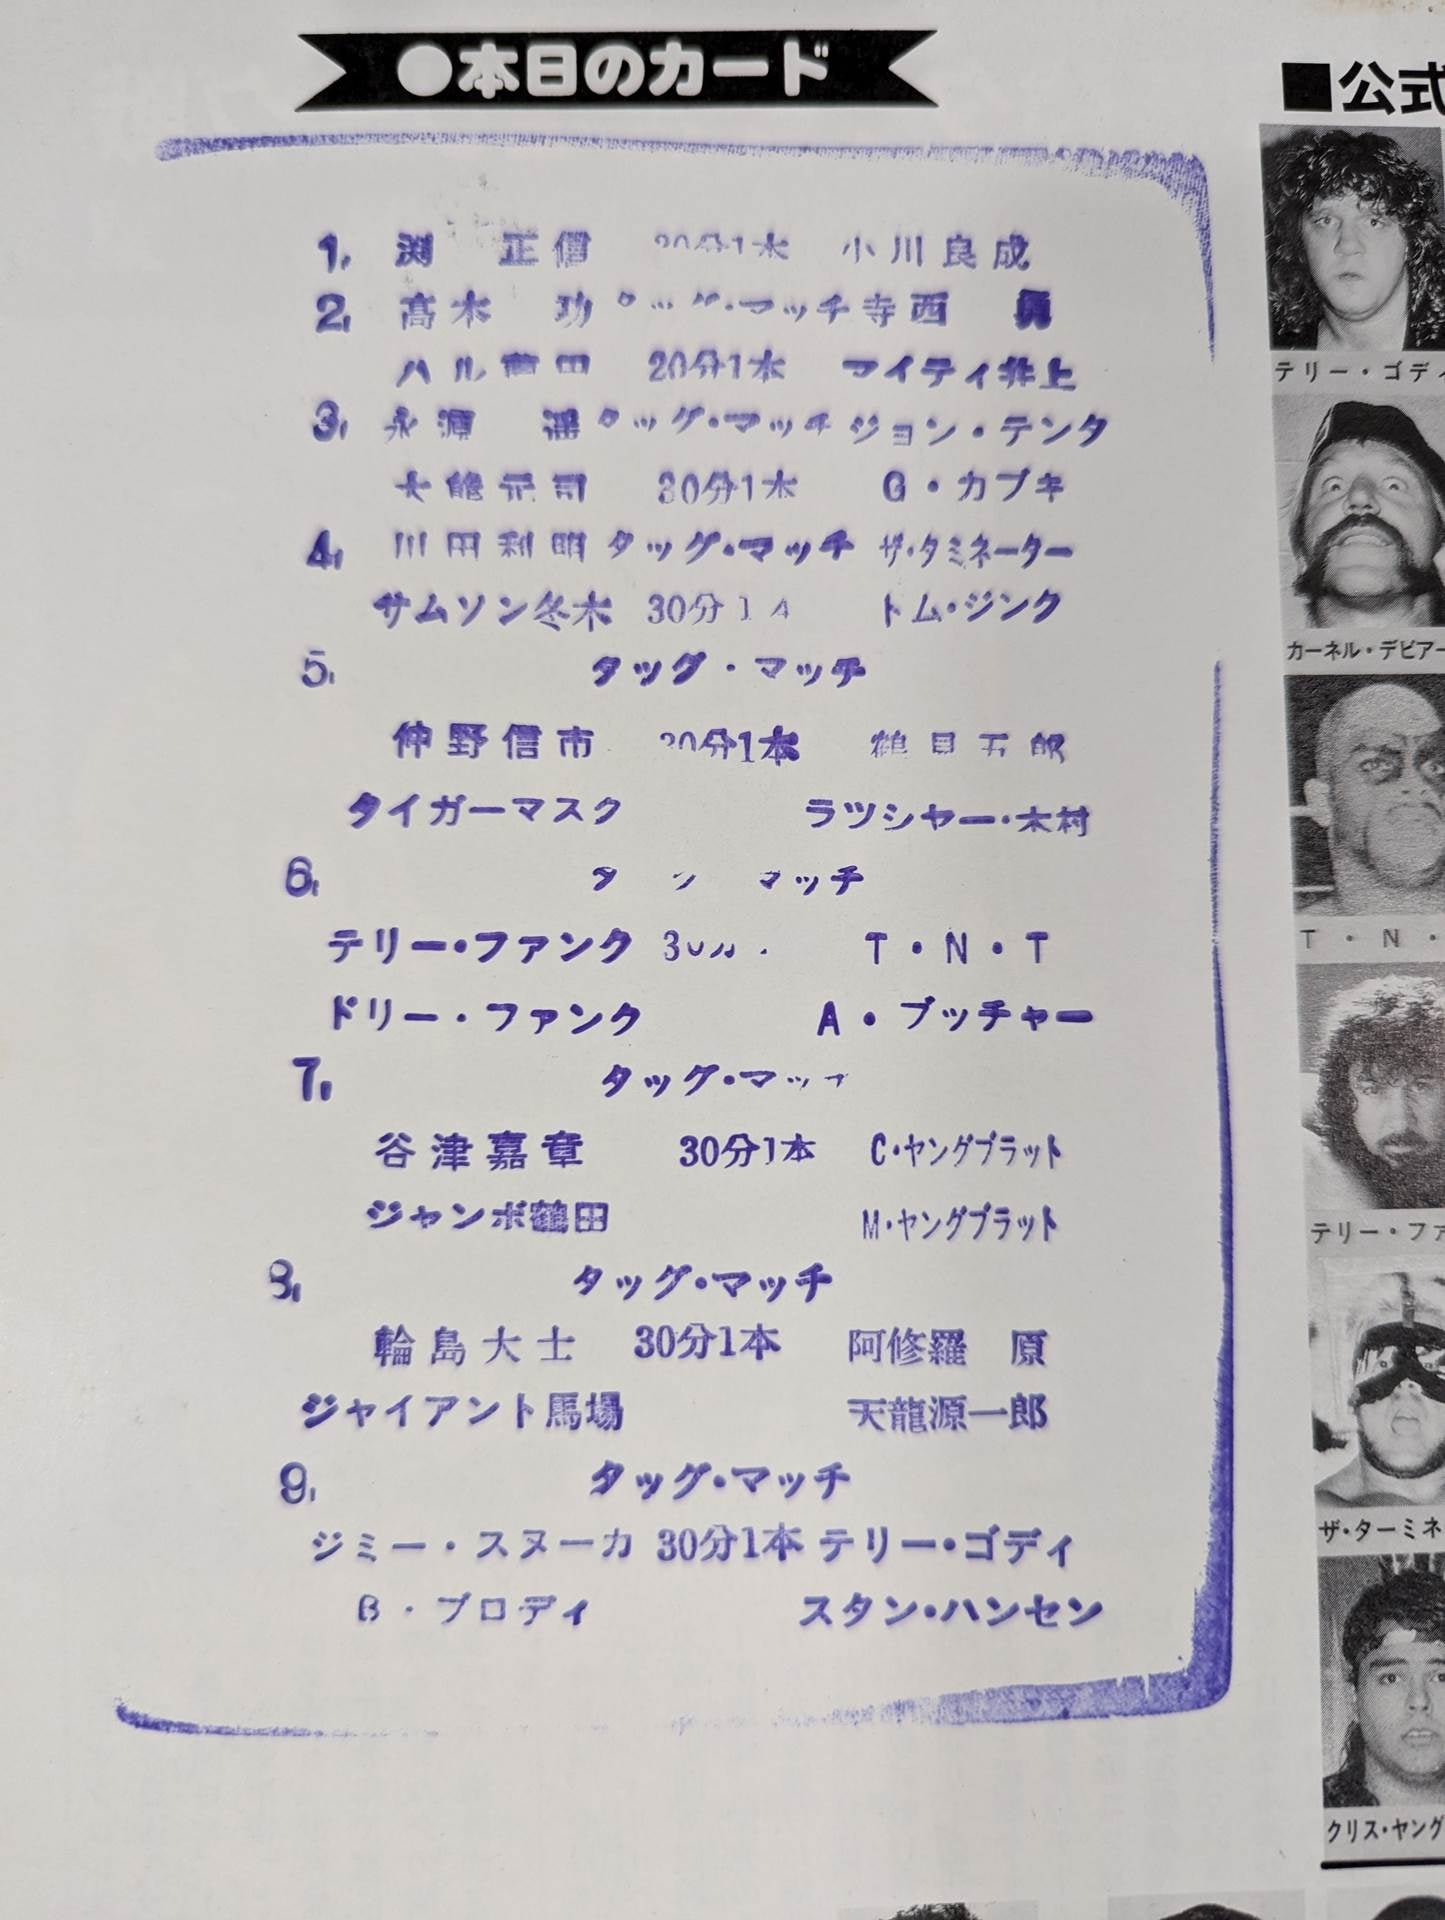 ●本日のカード
1. 渕 正信 20分1本 小川良成
2. 高木 功 タッグ・マッチ 寺西 勇
ハル薗田 20分1本 マイティ井上
3. 永源 遥 タッグ・マッチ ジョン・テンタ
大熊元司 30分1本 G・カブキ
4. 川田利明 タッグ・マッチ ザ・タミネーター
サムソン冬木 30分1 トム・ジンク
5. タッグ・マッチ
仲野信市 30分1本 鶴見五郎
タイガーマスク ラツシヤー・木村
6. タッ マッチ
テリー・ファンク 30分 T・N・T
ドリー・ファンク A・ブッチャー
7. タッグ・マッチ
谷津嘉章 30分1本 C・ヤングブラット
ジャンボ鶴田 M・ヤングブラット
8. タッグ・マッチ
輪島大士 30分1本 阿修羅 原
ジャイアント馬場 天龍源一郎
9. タッグ・マッチ
ジミー・スヌーカ 30分1本 テリー・ゴディ
B・ブロディ スタン・ハンセン
■公式
テリー・ゴディ
カーネル・デビアー
T・N・
テリー・ファ
ザ・ターミネ
クリス・ヤング